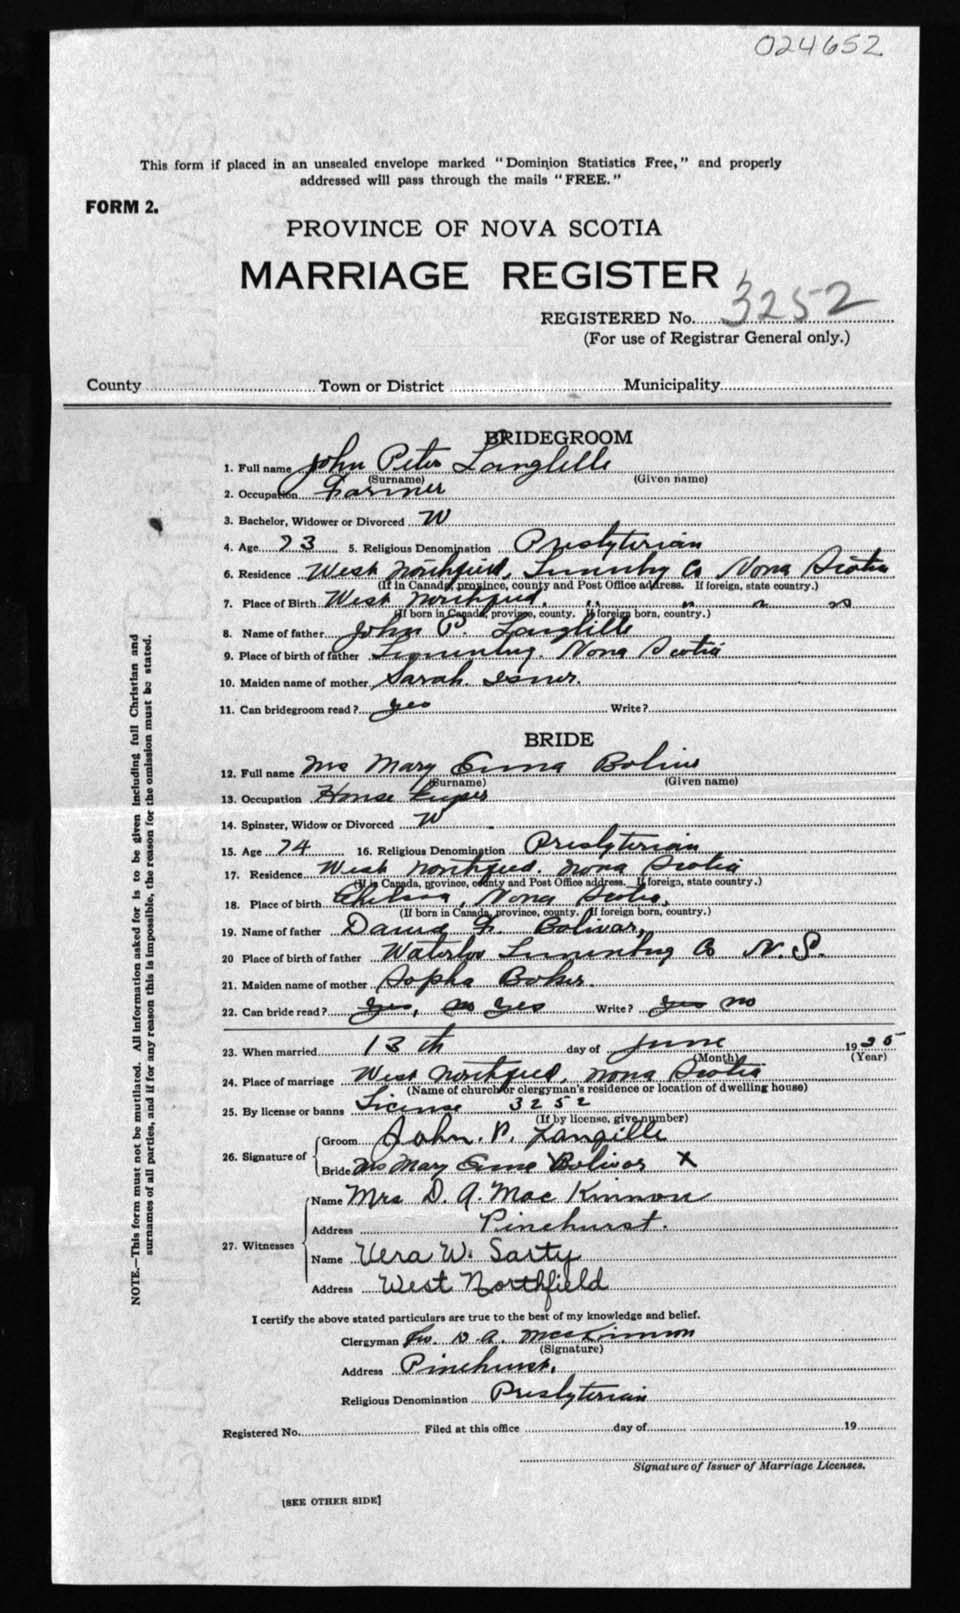 024652
This form if placed in an unsealed envelope marked "Dominion Statistics Free," and properly
addressed will pass through the mails "FREE."
FORM 2.
PROVINCE OF NOVA SCOTIA
MARRIAGE REGISTER
REGISTERED No. 3252
(For use of Registrar General only.)
County Town or District Municipality
BRIDEGROOM
1. Full name John Peter Langlille
(Surname) (Given name)
2. Occupation Farmer
3. Bachelor, Widower or Divorced W
4. Age 73 5. Religious Denomination Presbyterian
6. Residence West Northfield, Lunenburg Co Nova Scotia
(If in Canada, province, county and Post Office address. If foreign, state country.)
7. Place of Birth West Northfield, " " " "
(If born in Canada, province, county. If foreign born, country.)
8. Name of father John P. Langlille
9. Place of birth of father Lunenburg. Nova Scotia
10. Maiden name of mother Sarah Isner.
11. Can bridegroom read? yes Write?
BRIDE
12. Full name Mrs Mary Emma Bolivar
(Surname) (Given name)
13. Occupation House keeper
14. Spinster, Widow or Divorced W
15. Age 74 16. Religious Denomination Presbyterian
17. Residence West Northfield. Nova Scotia
(If in Canada, province, county and Post Office address. If foreign, state country.)
18. Place of birth Chelsea, Nova Scotia,
(If born in Canada, province, county. If foreign born, country.)
19. Name of father David F. Bolivar,
20 Place of birth of father Waterloo Lunenburg Co N.S.
21. Maiden name of mother Sopha Boker.
22. Can bride read? Yes, no Yes Write? Yes no
23. When married 13th day of June 19
(Month) (Year)
24. Place of marriage West Northfield, Nova Scotia
(Name of church or clergyman's residence or location of dwelling house)
25. By license or banns License 3252
(If by license, give number)
26. Signature of Groom John. P. Langille
Bride Mrs Mary Emma Bolivar X
27. Witnesses Name Mrs D. A. MacKinnon
Address Pinehurst.
Name Vera W. Sarty
Address West Northfield
I certify the above stated particulars are true to the best of my knowledge and belief.
Clergyman D. A. MacKinnon
(Signature)
Address Pinehurst.
Religious Denomination Presbyterian
Registered No. Filed at this office day of 19
Signature of Issuer of Marriage Licenses.
[SEE OTHER SIDE]
NOTE.—This form must not be mutilated. All information asked for is to be given including full Christian and
surnames of all parties, and if for any reason this is impossible, the reason for the omission must be stated.